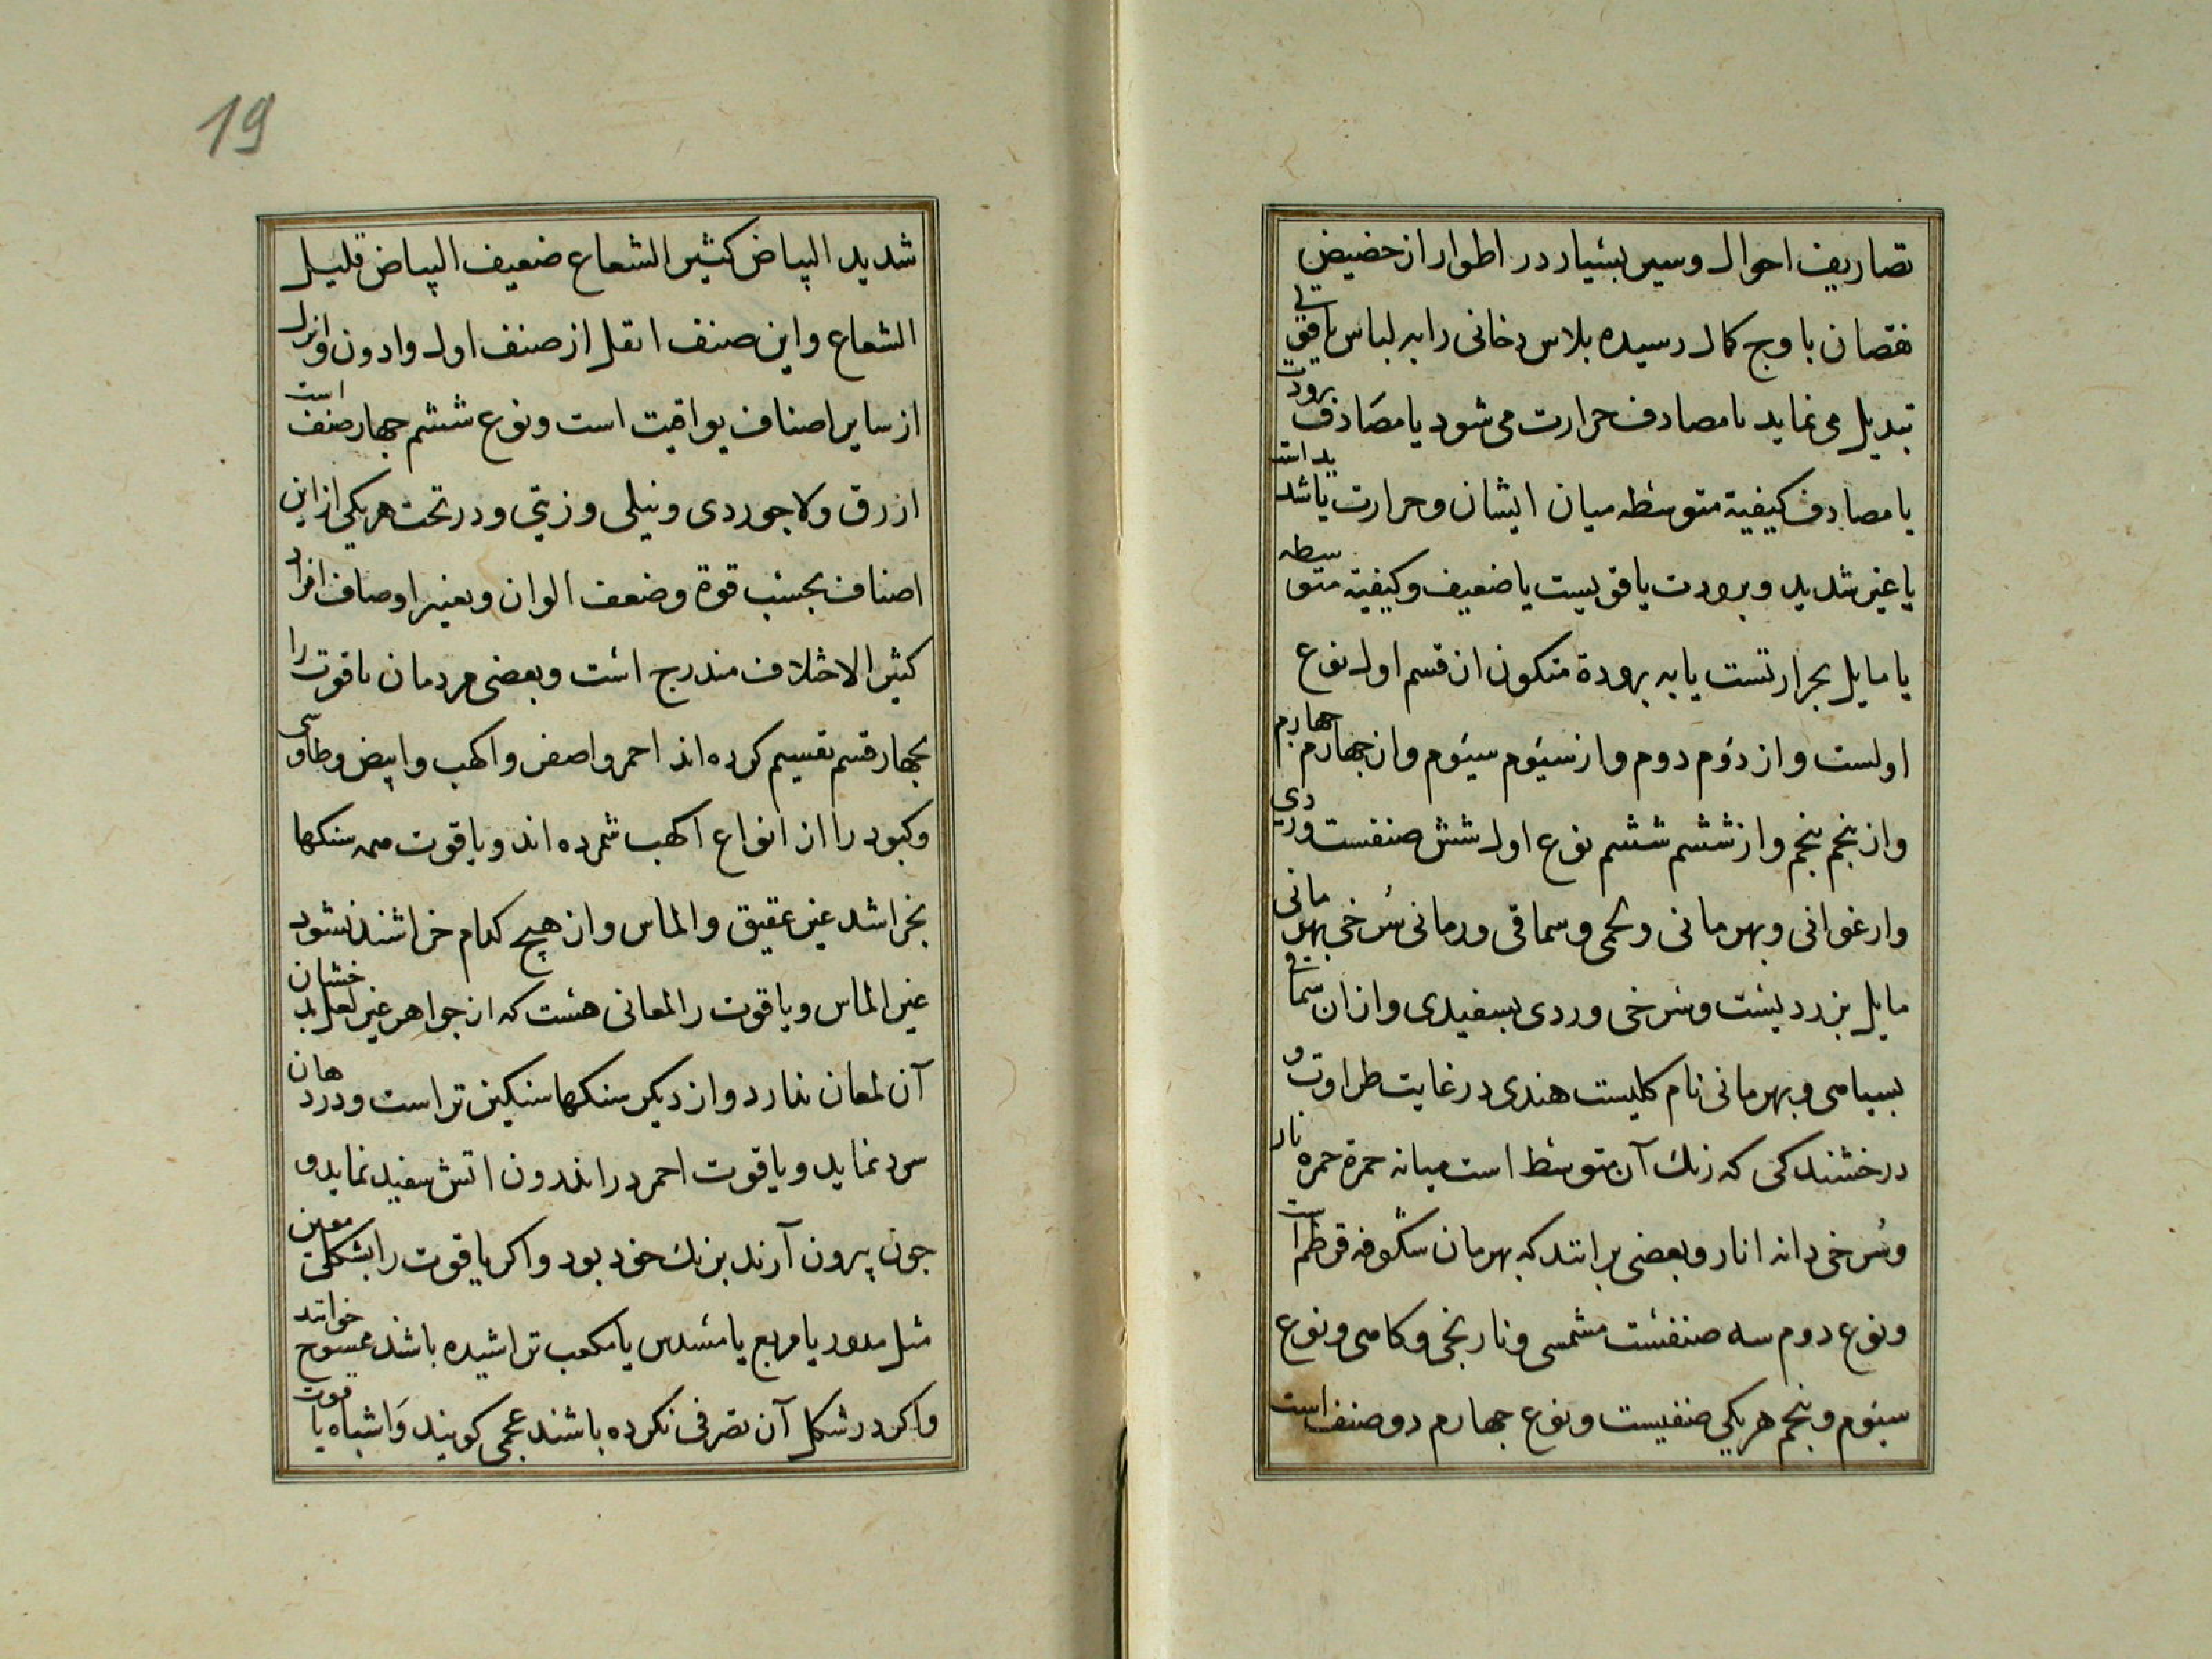 تصاریف احوال وسیر بسیار در اطوار از حضیض
نقصان باوج کمال رسیده بلاس دخانی را به لباس یاقوتی
تبدیل می نماید یا مصادف حرارت می شود یا مصادف برودت
یا مصادف کیفیة متوسطه میان ایشان وحرارت یا شدید است
یا غیر شدید وبرودت یا قویست یا ضعیف وکیفیة متوسطه
یا مایل بحرارتست یا به برودة متکون از قسم اول نوع
اولست واز دوم دوم واز سیوم سیوم واز چهارم چهارم
واز پنجم پنجم واز ششم ششم نوع اول شش صنفست وردی
وارغوانی وبهرمانی ولحمی وسماقی ورمانی سرخی بهرمانی
مایل بزردیست وسرخی وردی بسفیدی واز ان سماقی
بسیاهی وبهرمانی نام کلیست هندی در غایت طراوت و
درخشندکی که رنك آن متوسط است میانه حمرة حمره نار
وسرخی دانه انار وبعضی برانند که بهرمان شکوفه قرطم است
ونوع دوم سه صنفست مشمسی ونارنجی وکاهی ونوع
سیوم وپنجم هر یکی صنفیست ونوع چهارم دو صنف است
19
شدید البیاض کثیر الشعاع ضعیف البیاض قلیل
الشعاع واین صنف اثقل از صنف اول وادون وانزل
از سایر اصناف یواقیت است ونوع ششم چهار صنف است
ازرق ولاجوردی ونیلی وزیتی ودر تحت هر یکی از این
اصناف بحسب قوة وضعف الوان وبعیر اوصاف افراد
کثیر الاختلاف مندرج است وبعضی مردمان یاقوت را
بچهار قسم تقسیم کرده اند احمر واصفر واکهب وابیض وطاوسی
وکبود را از انواع اکهب شمرده اند ویاقوت همه سنکها
بخراشد غیر عقیق والماس واز هیچ کدام خراشند نشود
غیر الماس ویاقوت را لمعانی هست که از جواهر غیر لعل بدخشان
آن لمعان ندارد واز دیکر سنکها سنکین تر است ودر دهان
سرد نماید ویاقوت احمر در اندرون اتش سفید نماید و
چون بیرون آرند برنك خود بود واکر یاقوت را بشکلی معین
مثل مدور یا مربع یا مسدس یا مکعب تراشیده باشند ممسوح خوانند
واکر در شکل آن تصرفی نکرده باشند عجمی کویند واشباه یاقوت